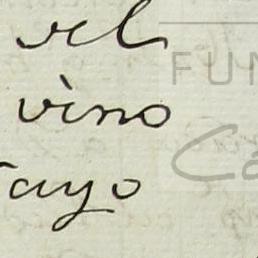 del
vino
ayo
FUN
Ca